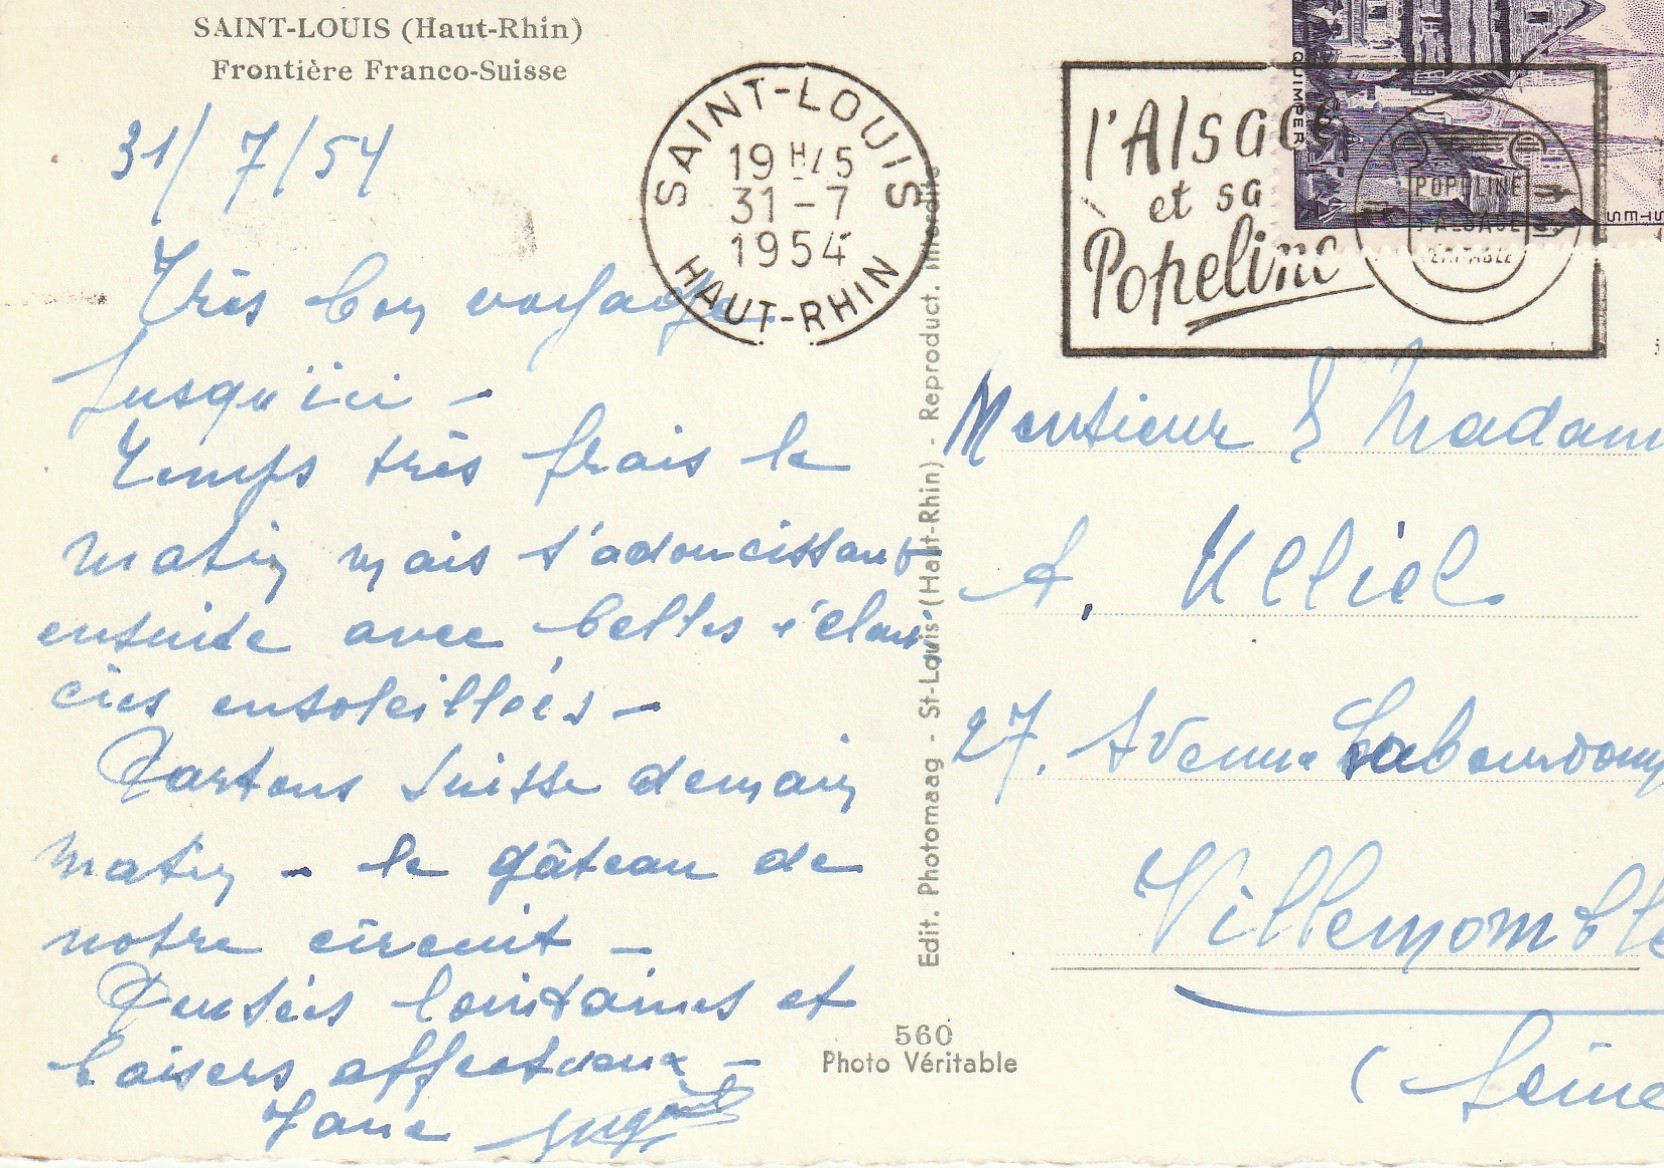 SAINT-LOUIS (Haut-Rhin)
Frontière Franco-Suisse
31/7/54
Très bon voyage
jusqu'ici -
Temps très frais le
matin mais s'adoucissant
ensuite avec belles éclair
cies ensoleillées -
Partons Suisse demain
matin - le gâteau de
notre circuit -
Pensées lointaines et
baisers affectueux -
Jane
SAINT-LOUIS
19 H45
31 - 7
1954
HAUT-RHIN
l'Alsace
et sa
Popeline
POPELINE
D'ALSACE
VERITABLE
QUIMPER
STES
Edit. Photomaag - St-Louis (Haut-Rhin) - Reproduct. interdite
560
Photo Véritable
Monsieur & Madam
A. Ulliel
27, Avenue Labourdon
Villemomble
(Seine